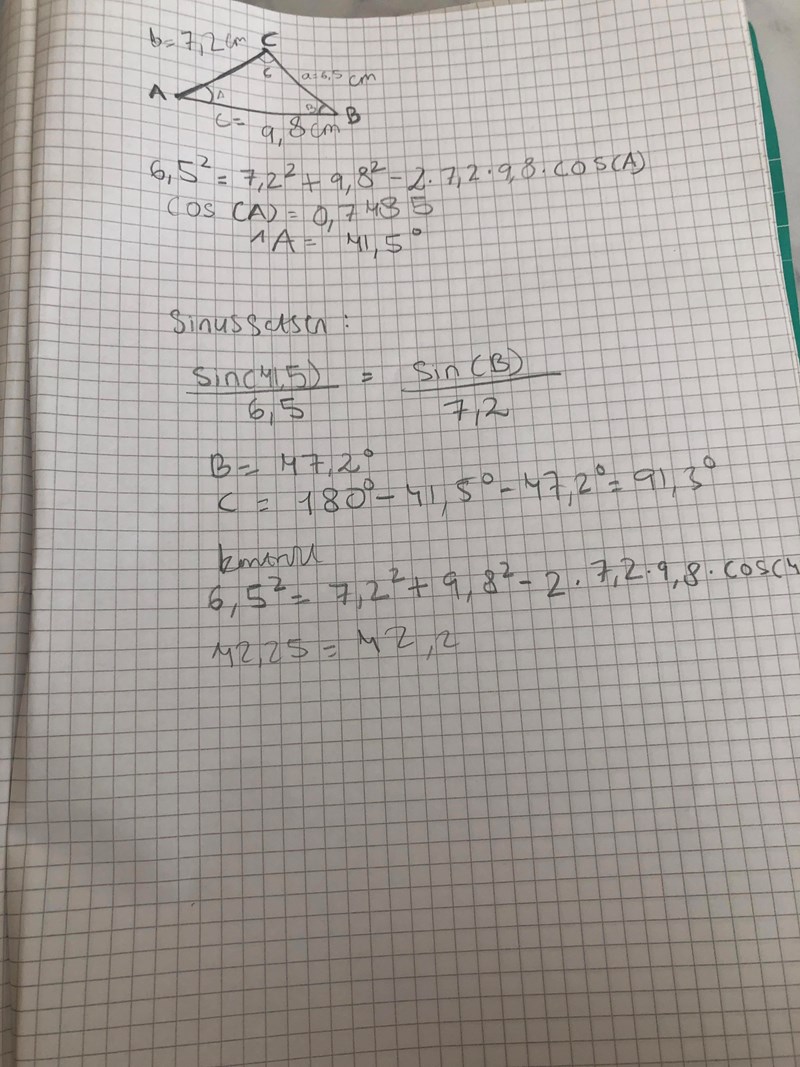 b=7,2cm C
c
a=6,5 cm
A
A
B
B
c=
9,8cm
6,5² = 7,2² + 9,8² - 2·7,2·9,8·cos(A)
cos (A) = 0,7485
1A = 41,5°
Sinussatsen :
sin(41,5) = sin(B)
6,5 7,2
B= 47,2°
C = 180° - 41,5° - 47,2° = 91,3°
kontroll
6,5² = 7,2² + 9,8² - 2·7,2·9,8·cos(4
42,25 = 42,2